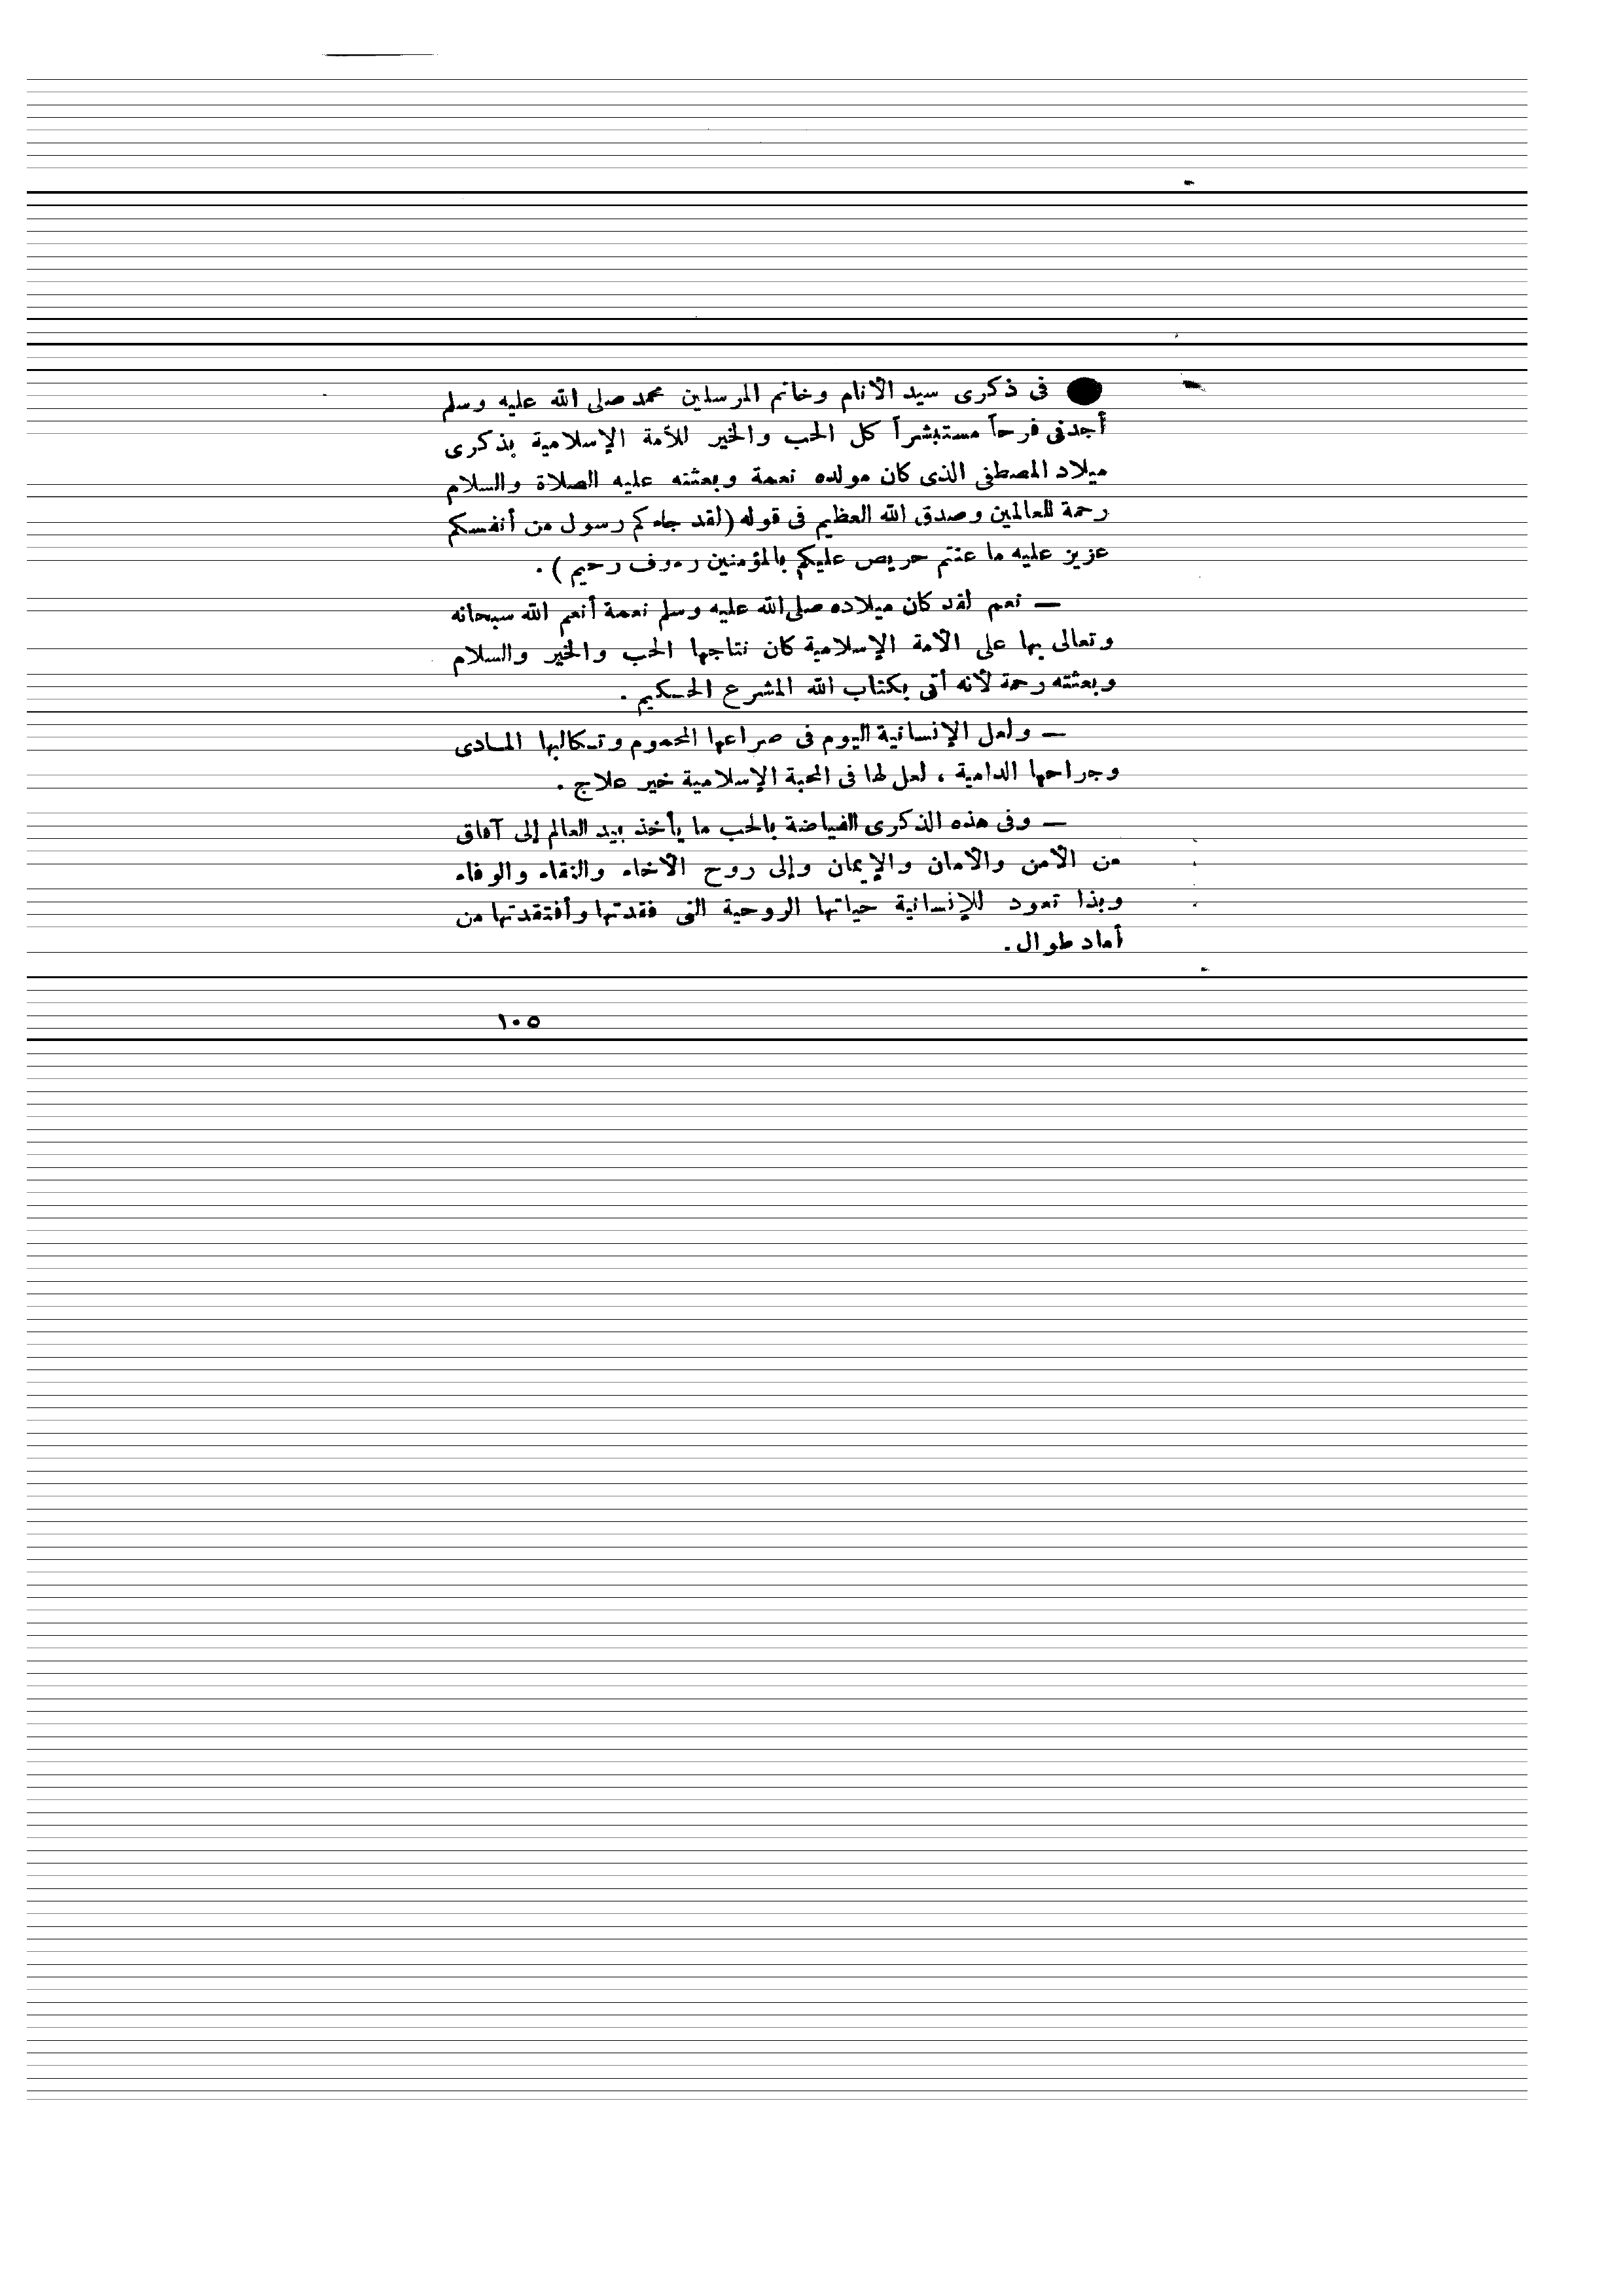 ● فى ذكرى سيد الأنام وخاتم المرسلين محمد صلى الله عليه وسلم
أجدنى فرحاً مستبشراً كل الحب والخير للأمة الإسلامية بذكرى
ميلاد المصطفى الذى كان مولده نعمة وبعثته عليه الصلاة والسلام
رحمة للعالمين وصدق الله العظيم فى قوله (لقد جاءكم رسول من أنفسكم
عزيز عليه ما عنتم حريص عليكم بالمؤمنين رءوف رحيم) .
— نعم لقد كان ميلاده صلى الله عليه وسلم نعمة أنعم الله سبحانه
وتعالى بها على الأمة الإسلامية كان نتاجها الحب والخير والسلام
وبعثته رحمة لأنه أتى بكتاب الله المشرع الحكيم .
— ولعل الإنسانية اليوم فى صراعها المحموم وتكالبها المادى
وجراحها الدامية ، لعل لها فى المحبة الإسلامية خير علاج .
— وفى هذه الذكرى الفياضة بالحب ما يأخذ بيد العالم إلى آفاق
من الأمن والأمان والإيمان وإلى روح الأخاء والنقاء والوفاء
وبذا تعود للإنسانية حياتها الروحية التى فقدتها وأفتقدتها من
أماد طوال .
١٠٥